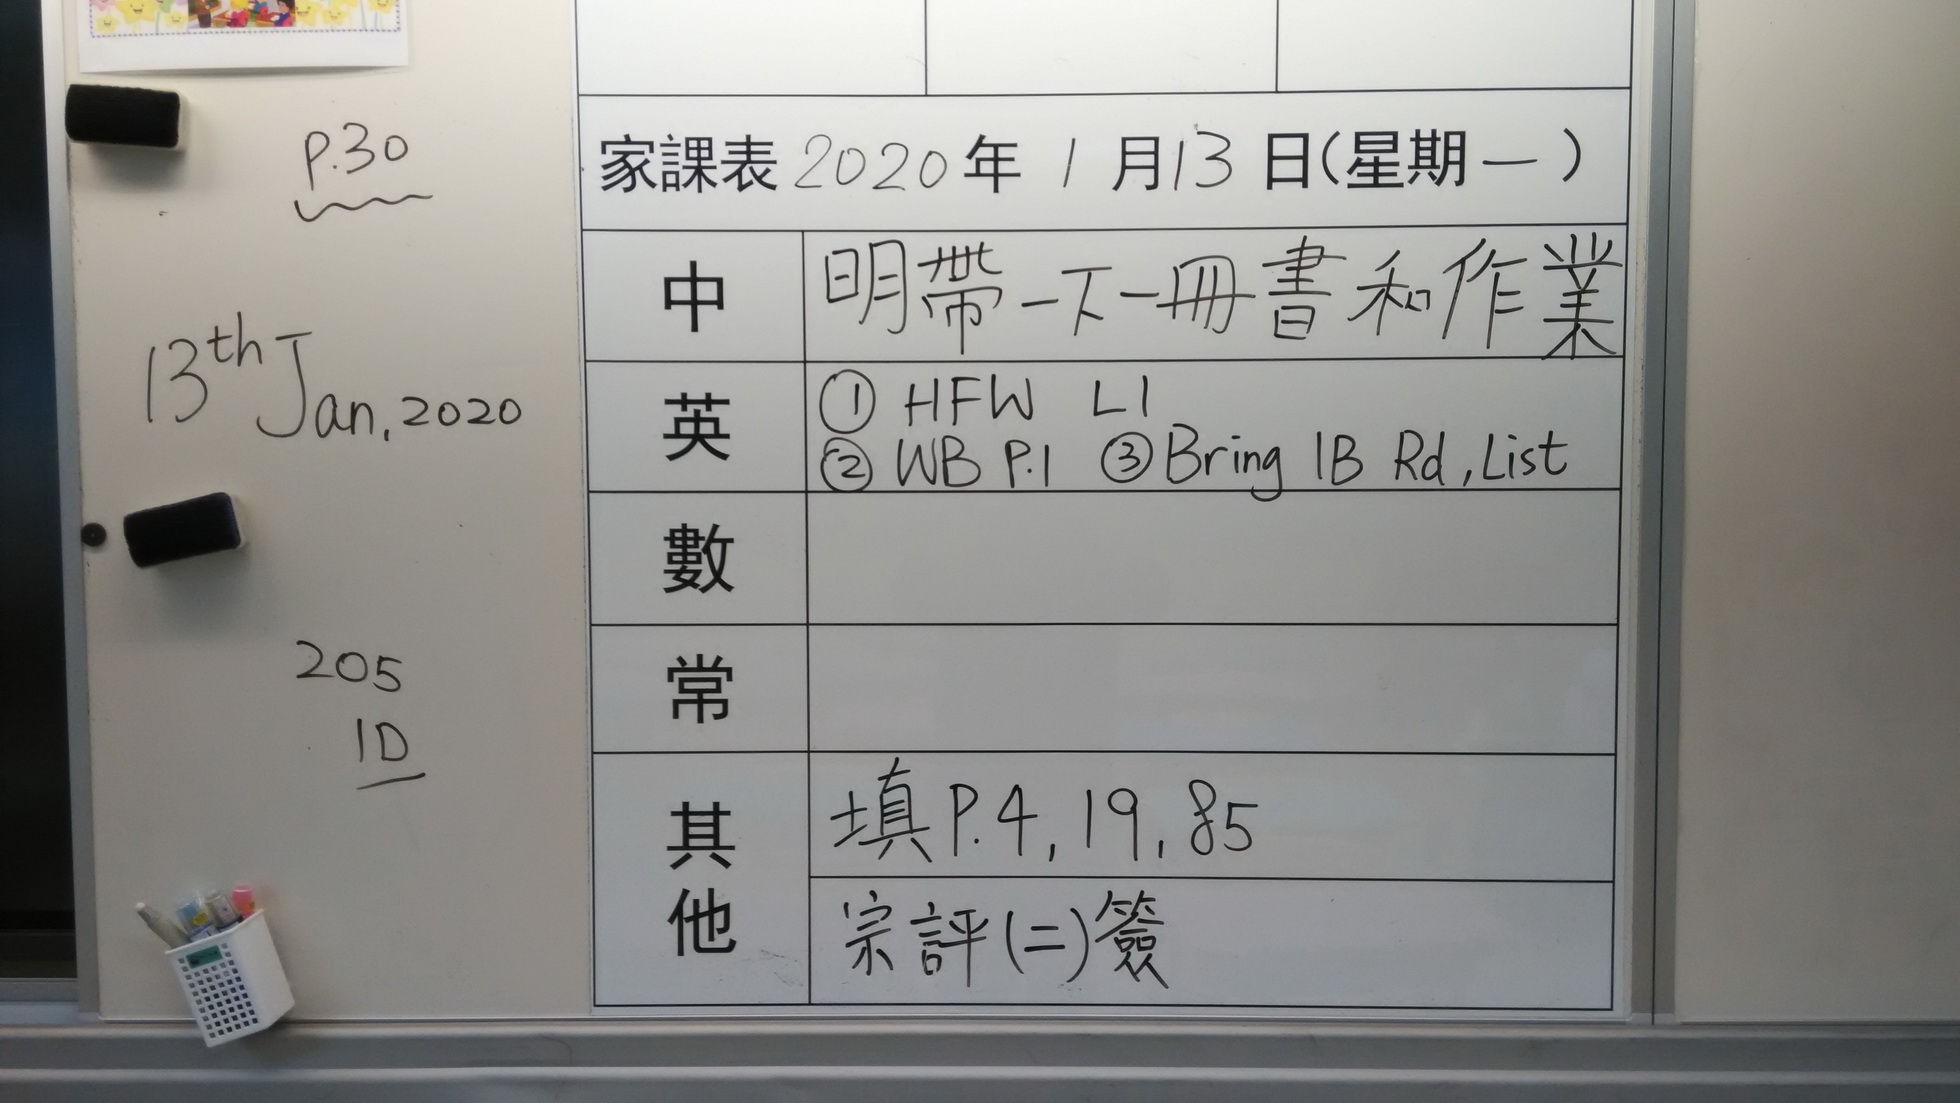 P.30
13th Jan, 2020
205
1D
家課表 2020 年 1 月 13 日(星期一)
中
明帶一下一冊書和作業
英
① HFW L1
② WB P.1 ③ Bring 1B Rd, List
數
常
其他
填P.4, 19, 85
宗評(二)簽